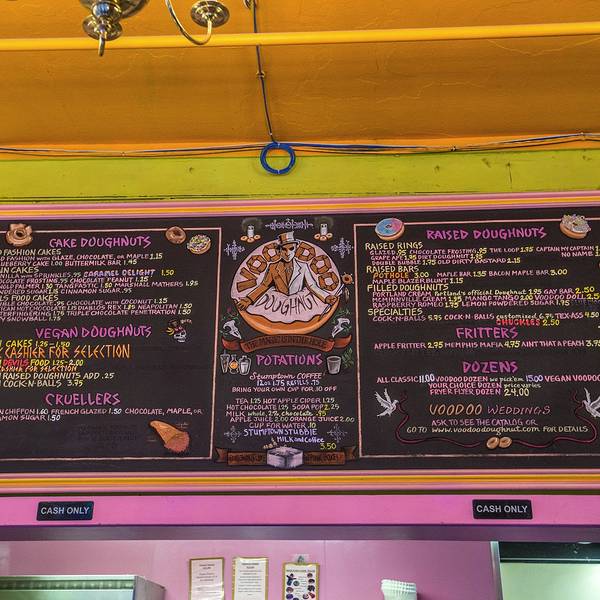 CAKE DOUGHNUTS
FASHION CAKES
FASHION WITH GLAZE, CHOCOLATE, OR MAPLE 1.15
BLUEBERRY CAKE 1.00 BUTTERMILK BAR 1.45
CAKES
CARAMEL DELIGHT 1.50
CHOCOLATE PEANUT 1.15
PALMER 1.30 TANGFASTIC 1.50 MARSHALL MATHERS 1.95
CINNAMON SUGAR .95
FOOD CAKES
CHOCOLATE .95 CHOCOLATE WITH COCONUT 1.15
NEAPOLITAN 1.50
TRIPLE CHOCOLATE PENETRATION 1.50
SNOWBALL 1.75
VEGAN DOUGHNUTS
CAKES 1.25-1.50
CASHIER FOR SELECTION
DEVILS FOOD 1.25-2.00
FOR SELECTION
RAISED DOUGHNUTS ADD .25
COCK-N-BALLS 3.75
CRUELLERS
CHIFFON 1.60 FRENCH GLAZED 1.50 CHOCOLATE, MAPLE, OR
SUGAR 1.50
VOODOO
DOUGHNUT
THE MAGIC IS IN THE HOLE
POTATIONS
Stumptown COFFEE
12 oz 1.75 REFILLS .75
BRING YOUR OWN CUP FOR 1.0FF
TEA 1.75 HOT APPLE CIDER 1.75
HOT CHOCOLATE 1.25 SODA POP 2.25
MILK whole, 2%, chocolate .95
APPLE JUICE 2.00 ORANGE JUICE 2.00
CUP FOR WATER .10
STUMPTOWN STUBBIE
MILK and Coffee
3.50
RAISED DOUGHNUTS
RAISED RINGS
GLAZED .95 CHOCOLATE FROSTING .95 THE LOOP 1.75 CAPTAIN MY CAPTAIN
GRAPE APE 1.95 DIRT DOUGHNUT 1.95 NO NAME
DOUBLE BUBBLE 1.75 OLD DIRTY BASTARD 2.25
RAISED BARS
POTHOLE 3.00 MAPLE BAR 1.35 BACON MAPLE BAR 3.00
MAPLE BLAZER BLUNT 1.15
FILLED DOUGHNUTS
PORTLAND CREAM Portland's official Doughnut 1.95 GAY BAR 2.50
MCMINNVILLE CREAM 1.95 MANGO TANG 2.00 VOODOO DOLL 2.50
RASPBERRY ROMEO 1.50 LEMON POWDERED SUGAR 1.75
SPECIALTIES
COCK-N-BALLS 5.75 COCK-N-BALLS customized 6.75 TEX-ASS 4.50
CHUCKLES 2.50
FRITTERS
APPLE FRITTER 2.75 MEMPHIS MAFIA 4.75 AINT THAT A PEACH 3.75
DOZENS
ALL CLASSIC 11.00 VOODOO DOZEN we pick 'em 15.00 VEGAN VOODOO
YOUR CHOICE DOZEN price varies
FRYER FLYER DOZEN 24.00
VOODOO WEDDINGS
ASK TO SEE THE CATALOG OR
GO TO www.voodoodoughnut.com FOR DETAILS
CASH ONLY
CASH ONLY